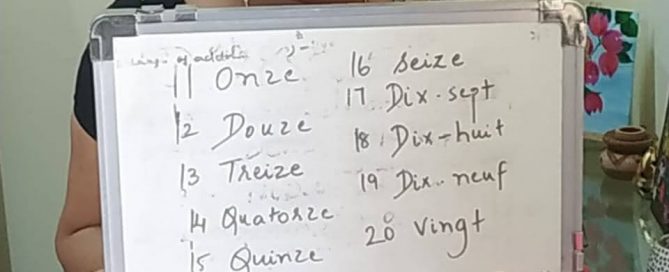 of
11 Onze
12 Douze
13 Treize
14 Quatorze
15 Quinze
16 Seize
17 Dix-sept
18 Dix-huit
19 Dix-neuf
20 Vingt